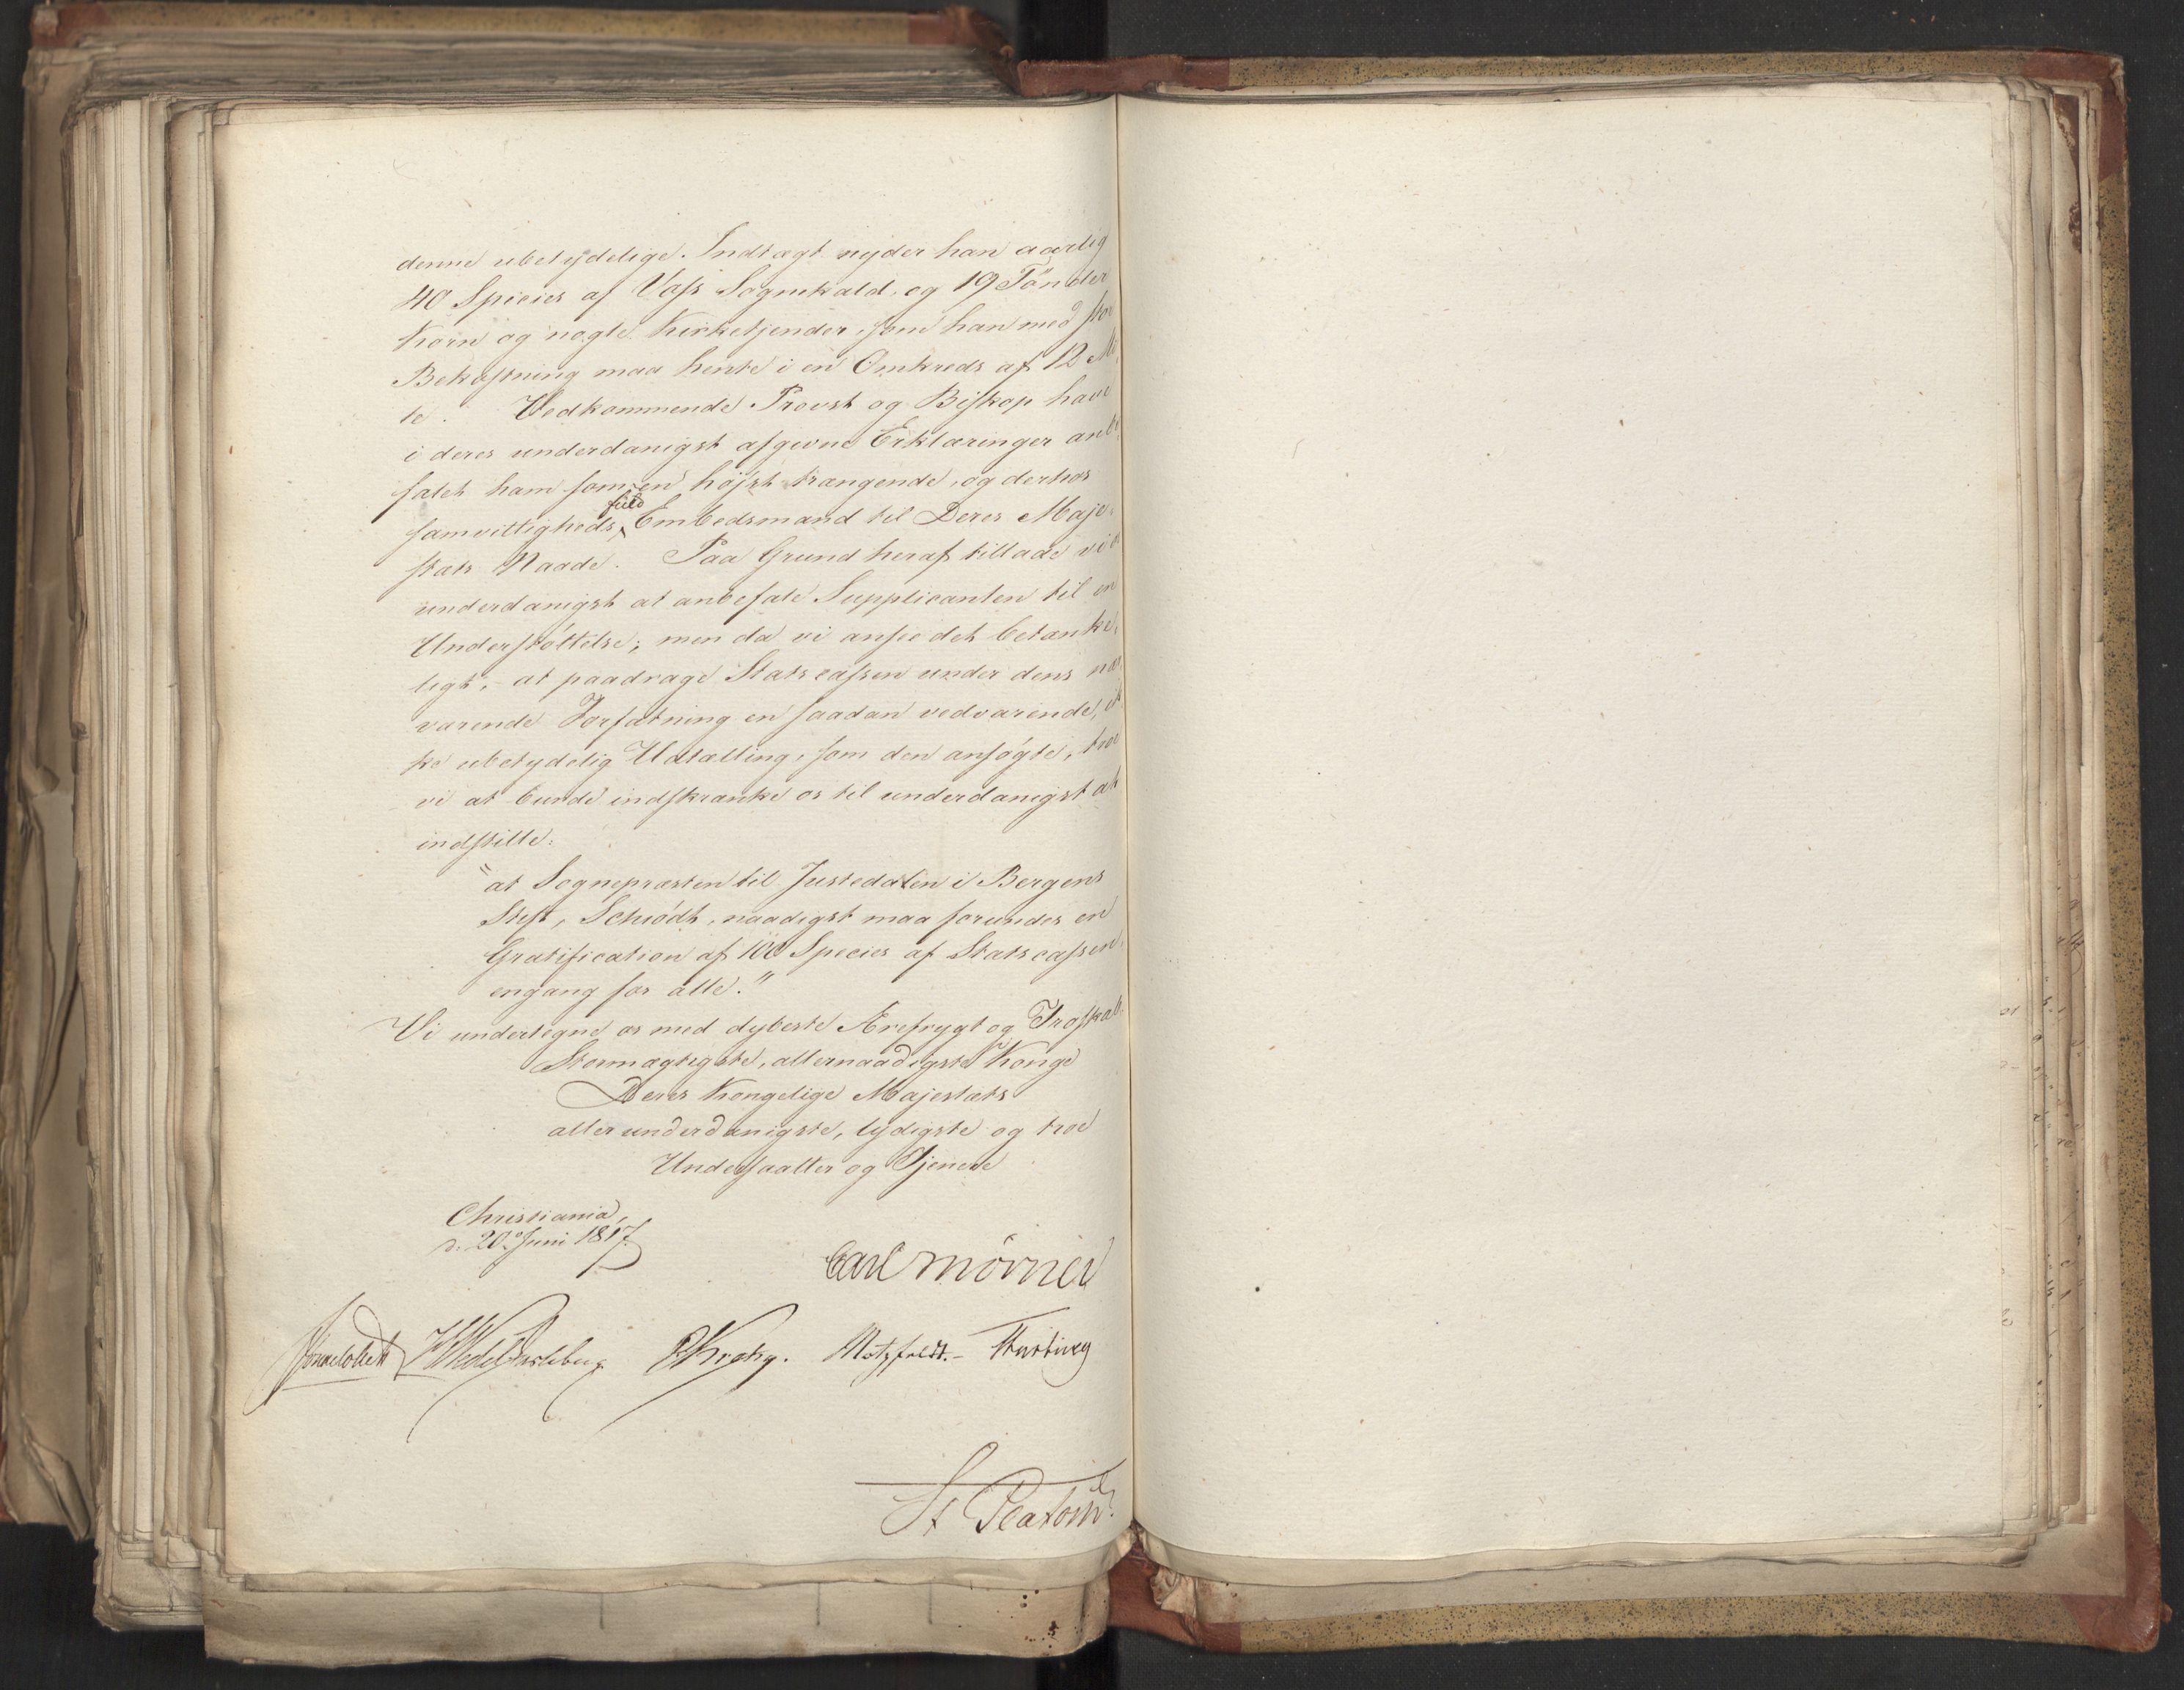 denne ubetydelige Indtægt nyder han aarlig
40 Species af Vass Sognekald og 19 Tönder
Korn og nogle Kirketjender, som han med stor
Bekostning maa hente i en Omkreds af 12 Mi,
le. Vedkommende Provst og Biskop have
i deres underdanigst afgivne Erklæringer anbe,
falet ham som en højst trængende, og derhos
samvittigheds
fuld
Embedsmand til Deres Maje-
stæts Naade. Paa Grund heraf tillade vi os
underdanigst at anbefale Supplicanten til en
Understöttelse; men da vi ansee det betænke,
ligt, at paadrage Statscassen under dens nær,
værende Forfatning en saadan vedvarende, ik,
ke ubetydelig Udtælling, som den ansögte, troe
vi at burde indskrænke os til underdanigst at
indstille:
"at Sognepræsten til Justedalen i Bergens
Stift, Schiödt, naadigst maa forundes en
Gratification af 100 Species af Statscassen,
engang for alle."
Vi undertegne os med dybeste Ærefrygt og Troskab,
Stormægtigste, allernaadigste Konge
Deres Kongelige Majestæts
allerunderdanigste, lydigste og troe
Undersaatter og Tjenere
Christiania,
d. 20de Juni 1817.
Carl Mörner
Sommelohielm? HWedelJarlsberg CKrohg. Motzfeldt.-